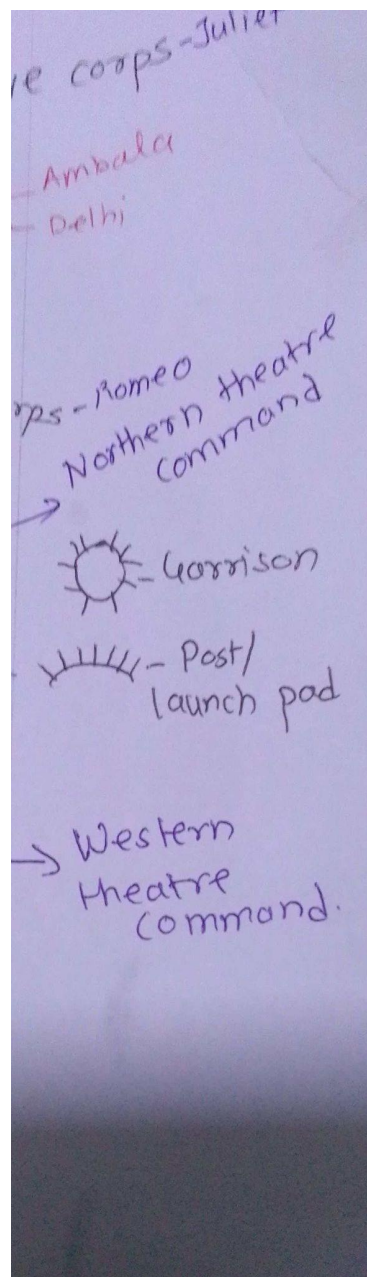 ve corps-Juliet
- Ambala
- Delhi
rps - Romeo
Northern theatre
command
- Garrison
- Post/
launch pad
Western
theatre
command.